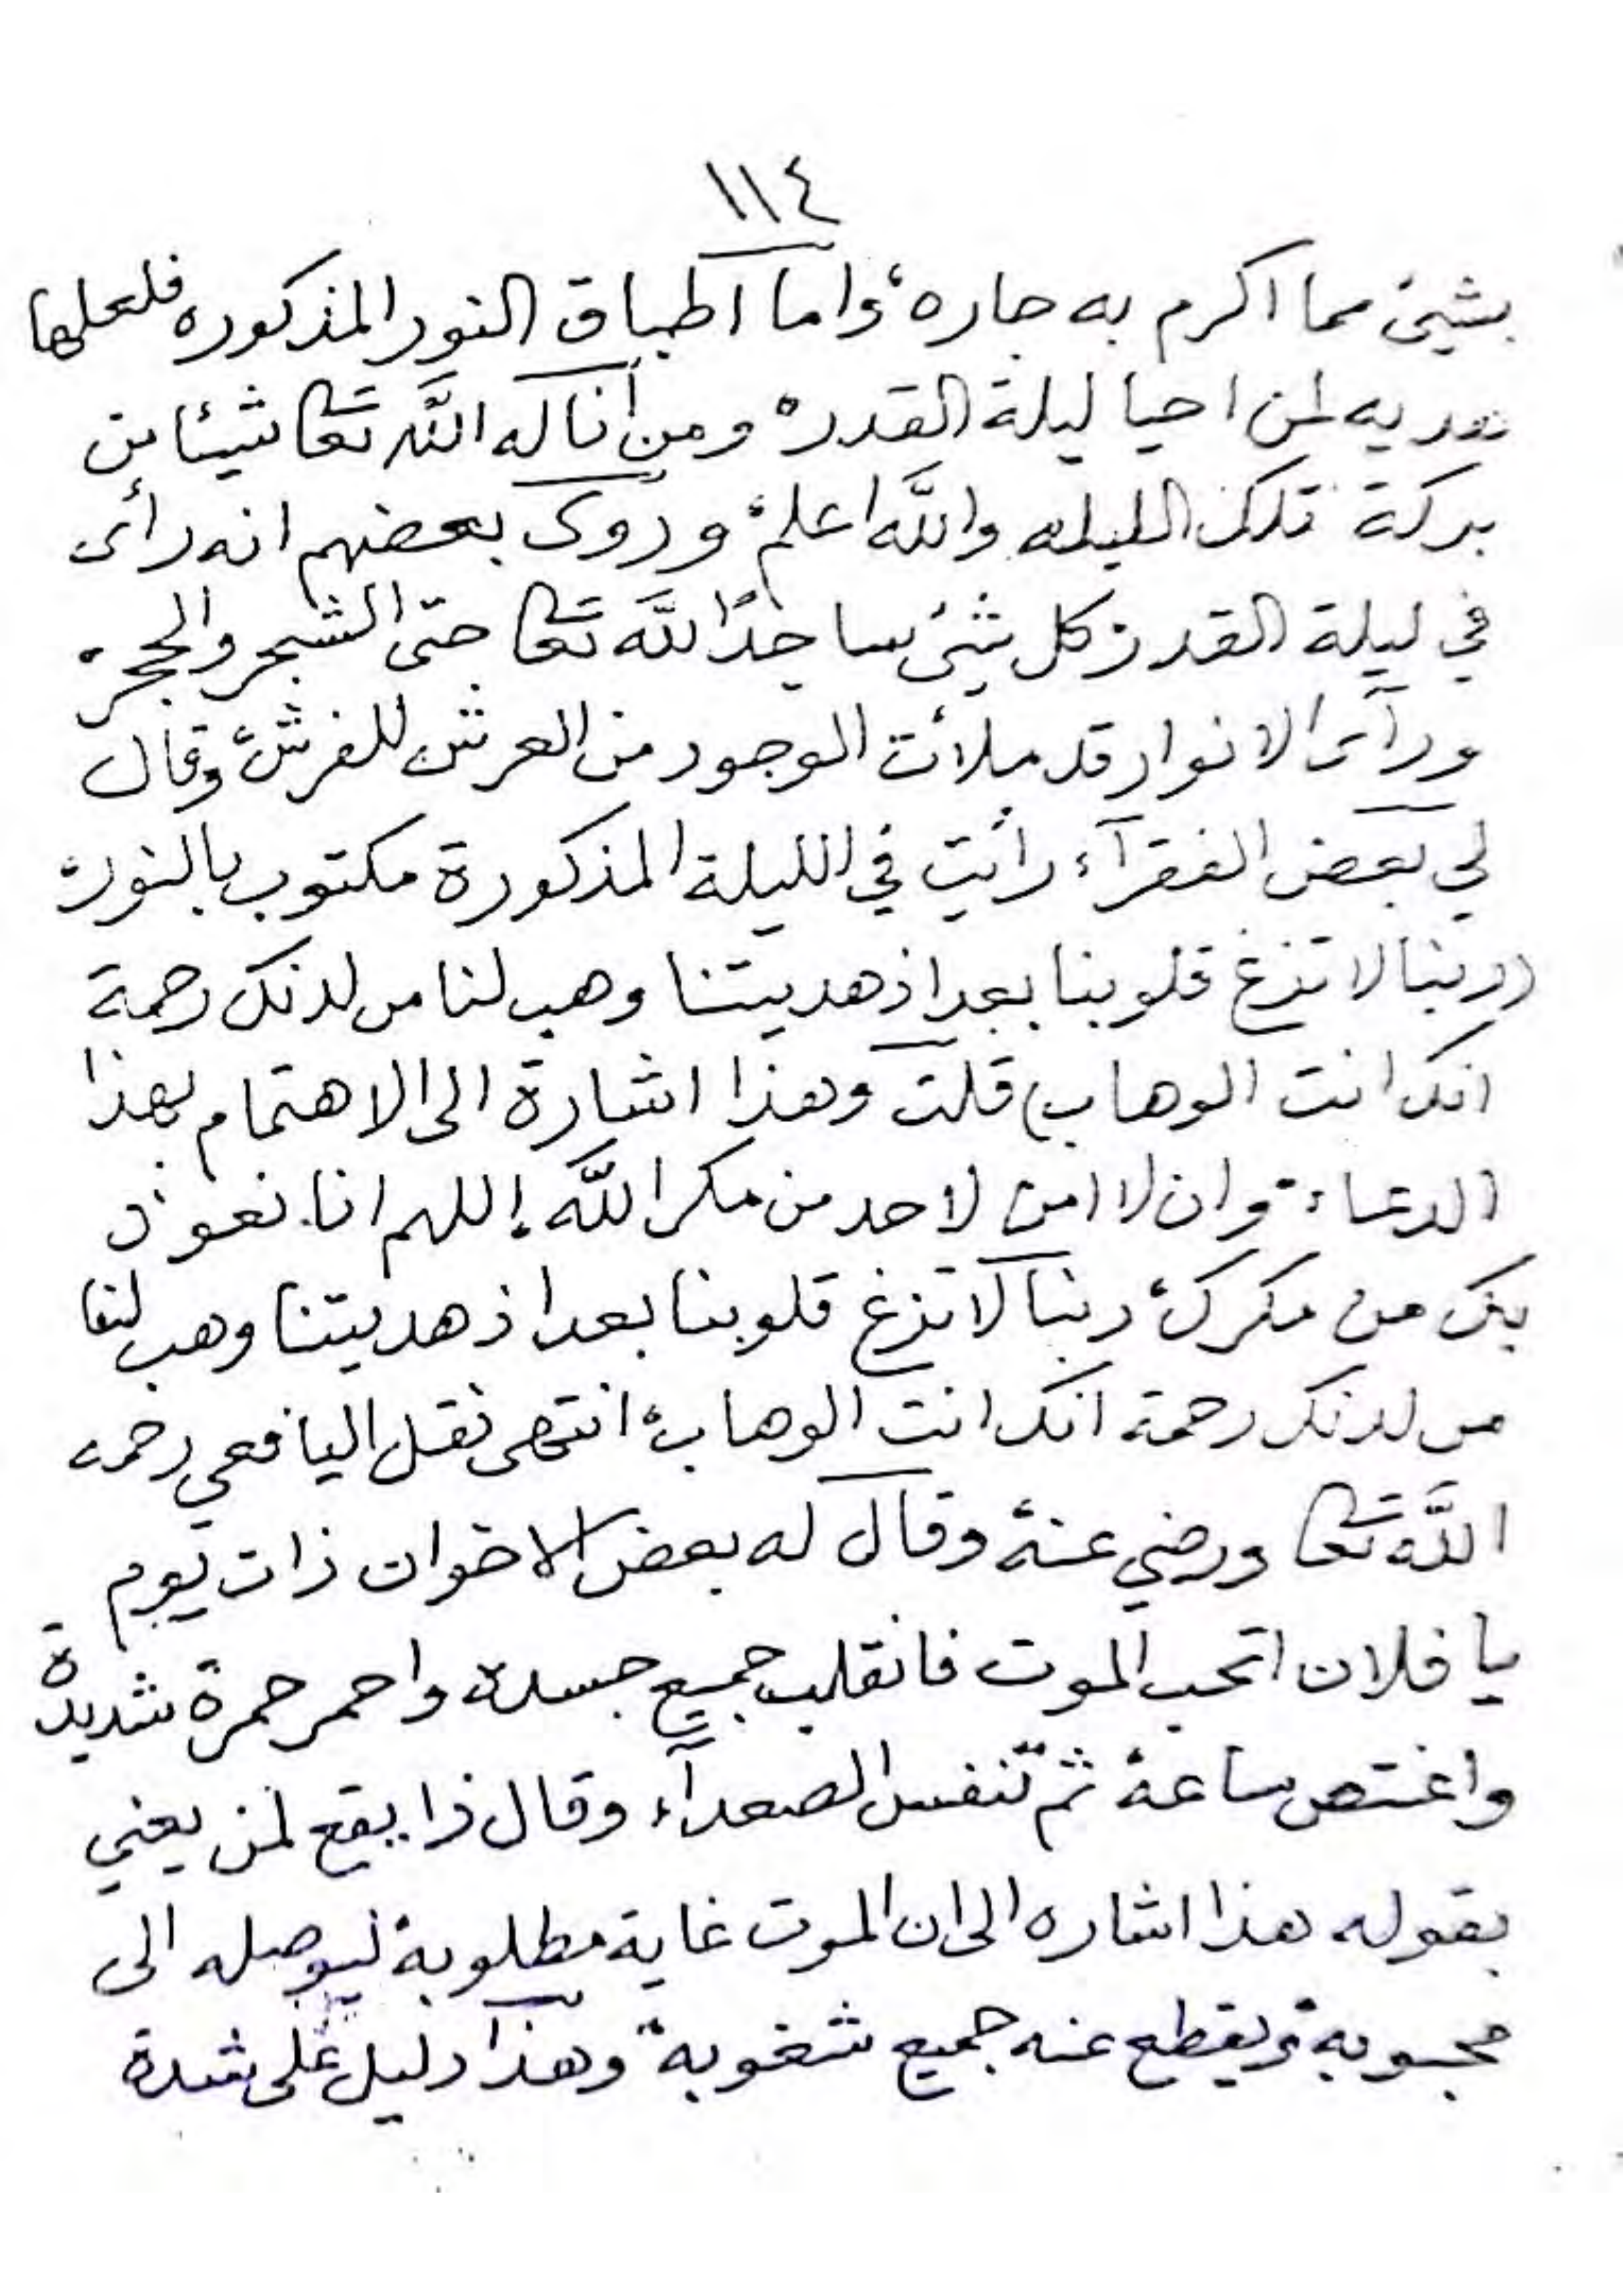 ١١٤
بشيئ مما اكرم به جاره، واما اطباق النور المذكوره فلعلها
هديه لمن احيا ليلة القدر، ومن أناله اللَّه تعا شيئا من
بركة تلك الليله واللَّه اعلم، وروى بعضهم انه رأى
في ليلة القدر كل شيئ ساجدًا للَّه تعا حتى الشجر والحجر،
ورآى الانوار قد ملأت الوجود من العرش للفرش، وقال
لي بعض الفقرآء رأيت في الليلة المذكورة مكتوب بالنور،
((ربنا لا تزغ قلوبنا بعد اذ هديتنا وهب لنا من لدنك رحمة
انك انت الوهاب) قلت وهذا اشارة الى الاهتمام بهذا
الدعاء، وان لا امن لاحد من مكر اللَّه، اللهم انا نعوذ
بك من مكرك، ربنا لا تزغ قلوبنا بعد اذ هديتنا وهب لنا
من لدنك رحمة انك انت الوهاب، انتهى نقل اليافعي رحمه
اللَّه تعا ورضي عنه، وقال له بعض الاخوان ذات يوم
يا فلان اتحب الموت فانقلب جميع جسده واحمر حمرة شديدة
واغتص ساعة، ثم تنفس الصعدآء وقال ذا يقع لمن يعني
بقوله هذا اشاره الى ان الموت غاية مطلوبة، ليوصله الى
محبوبة، ويقطع عنه جميع شغوبة، وهذا دليل على شدة